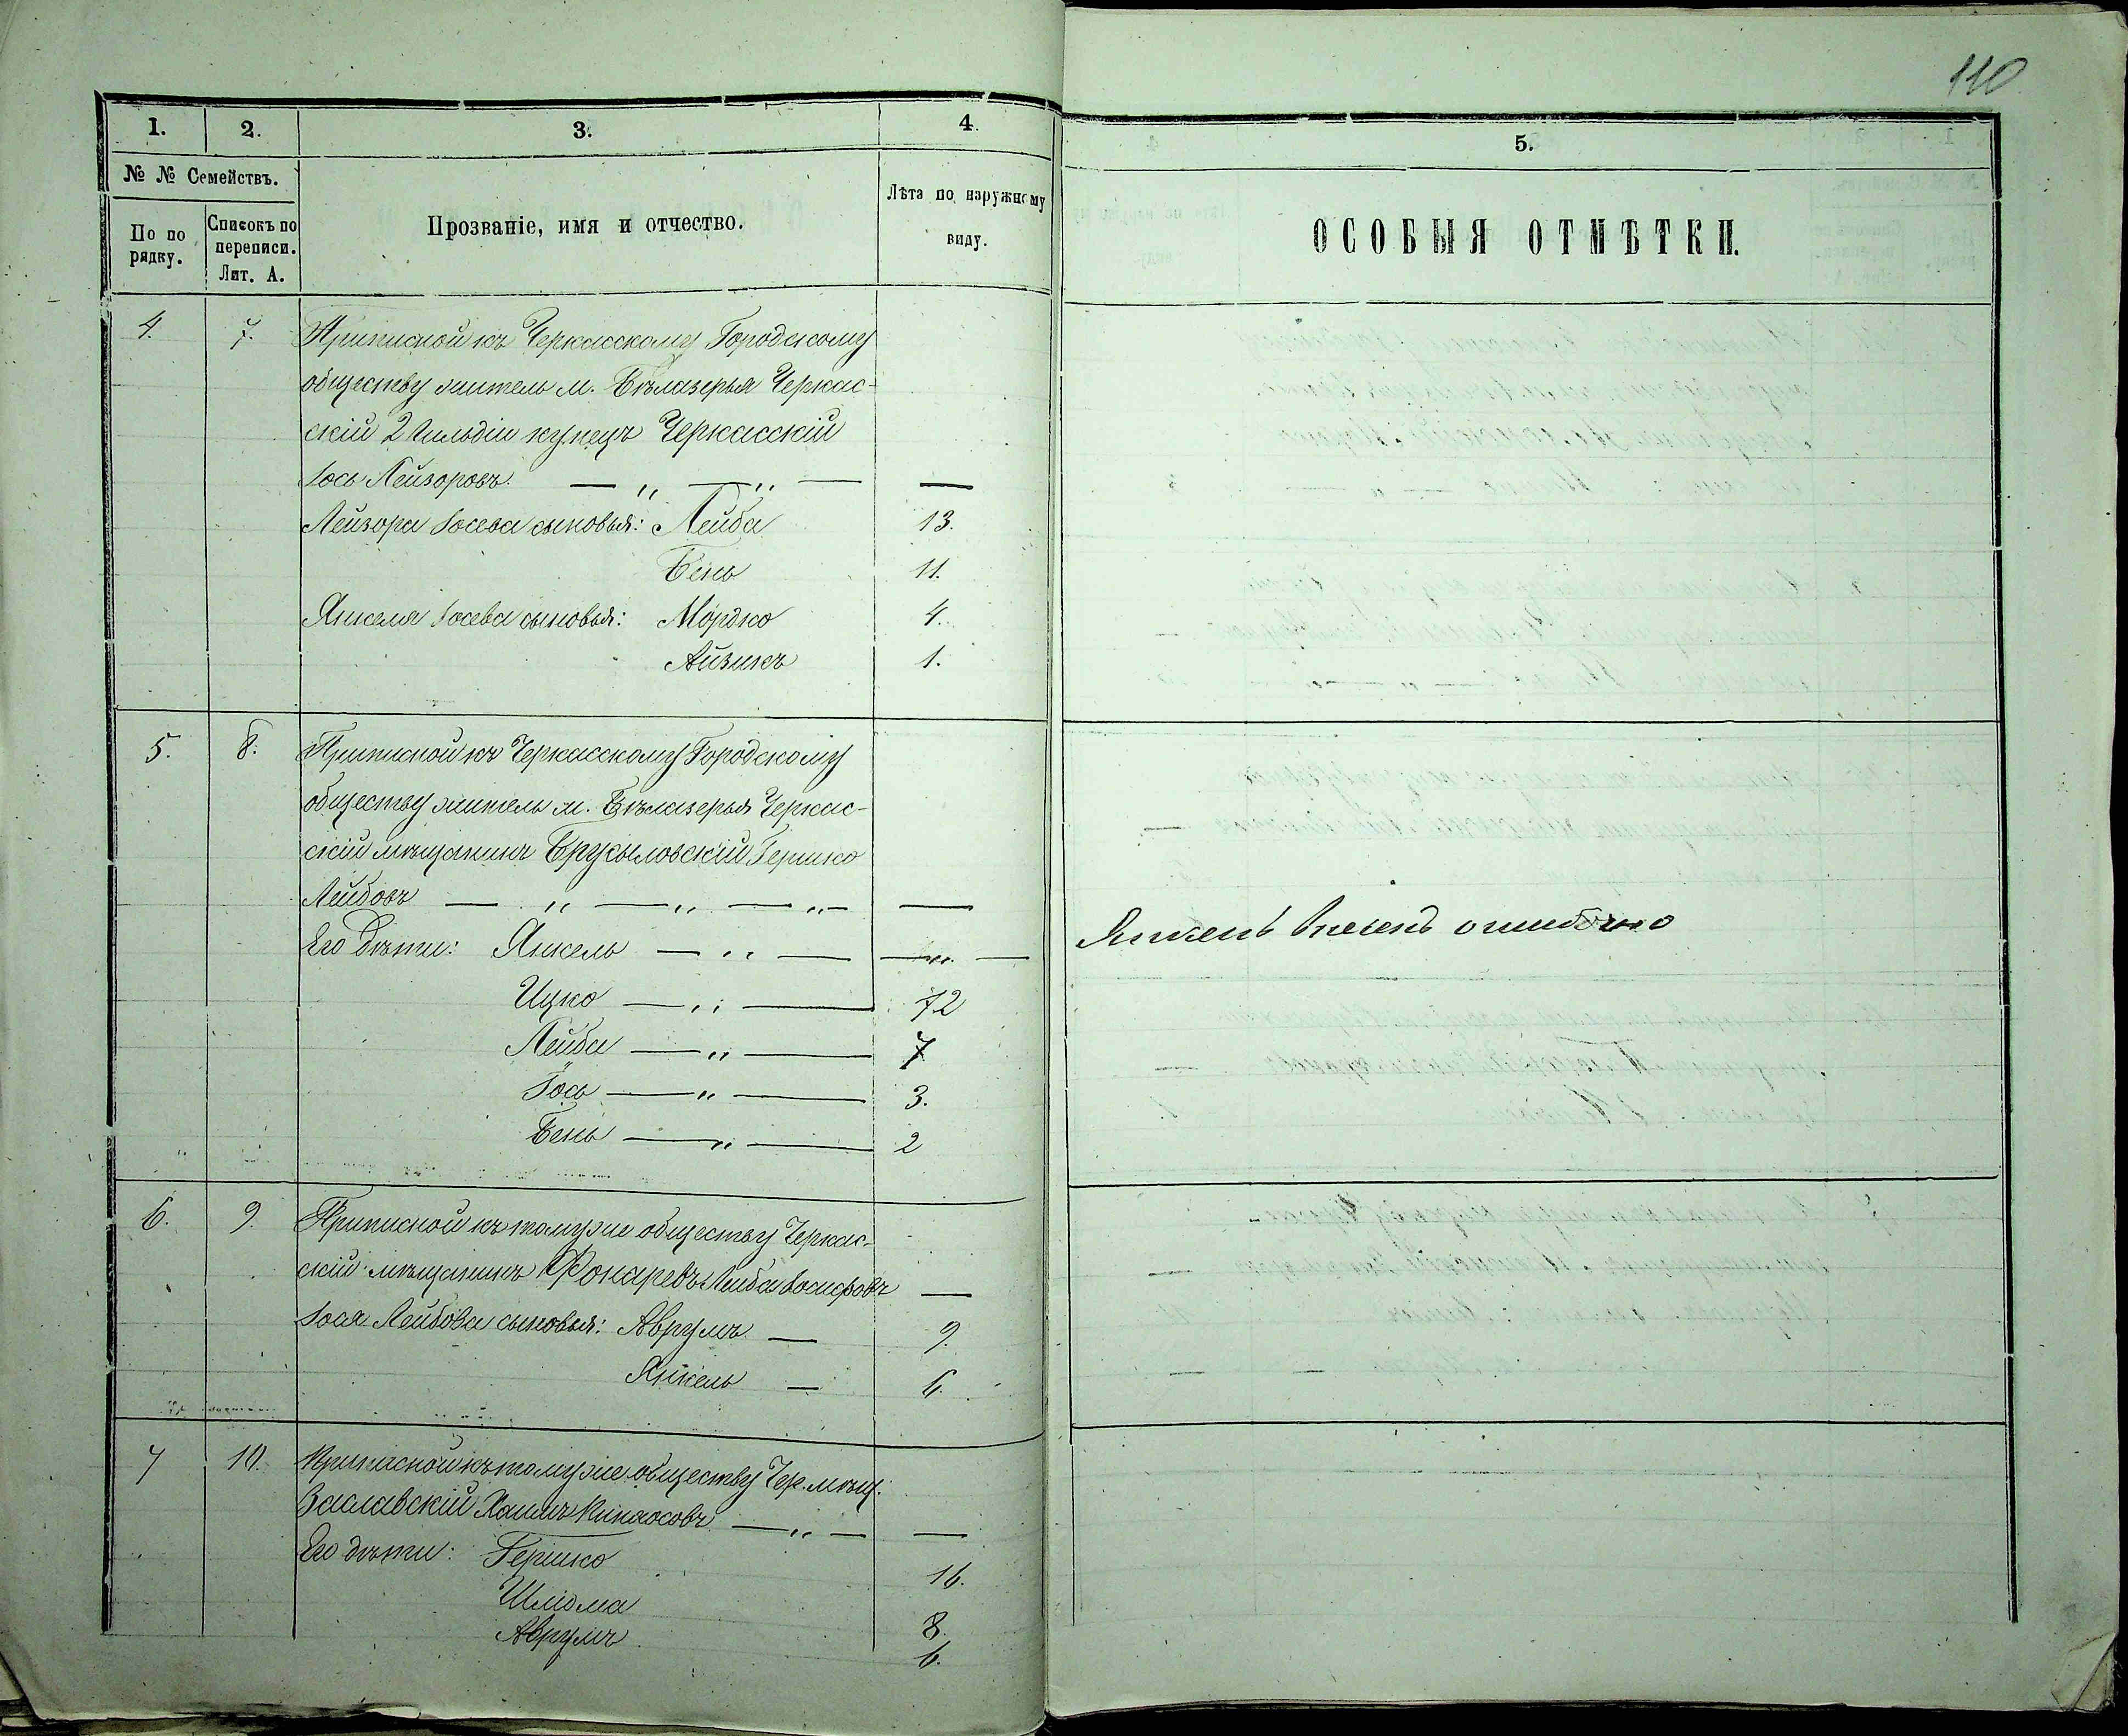 110
1. 2. 3. 4. 5.
№ № Семействъ.
По по рядку.
Списокъ по переписи. Лит. А.
Прозваніе, имя и отчество.
Лѣта по наружному виду.
ОСОБЫЯ ОТМѢТКИ.
4. 7. Приписной къ Черкасскому Городскому
обществу житель м. Бѣлазерья Черкас-
скій 2 Гильдіи купецъ Черкасскій
Іось Лейзоровъ. — „ — „ — —
Лейзора Іосева сыновья: Лейба 13.
Бень 11.
Янкеля Іосева сыновья: Мордко 4.
Айзикъ 1.
5. 8. Приписной къ Черкасскому Городскому
обществу житель м. Бѣлазерья Черкас-
скій мѣщанинъ Брусыловскій Гершко
Лейбовъ — „ — „ — „ — —
Его дѣти: Янкель — „ — — „ — Янкель ошибочно
Ицко — „ — 12
Лейба — „ — 7
Іось — „ — 3.
Бень — „ — 2
6. 9. Приписной къ тому же обществу Черкас-
скій мѣщанинъ Фокаревъ Лейба Іосифовъ —
Іося Лейбова сыновья: Аврумъ — 9.
Янкель — 6.
7 10. Приписной къ тому же обществу Чер. мѣщ.
Заславскій Хаимъ Пинхосовъ — „ — —
Его дѣти: Гершко 16.
Шліома 8.
Аврумъ 6.